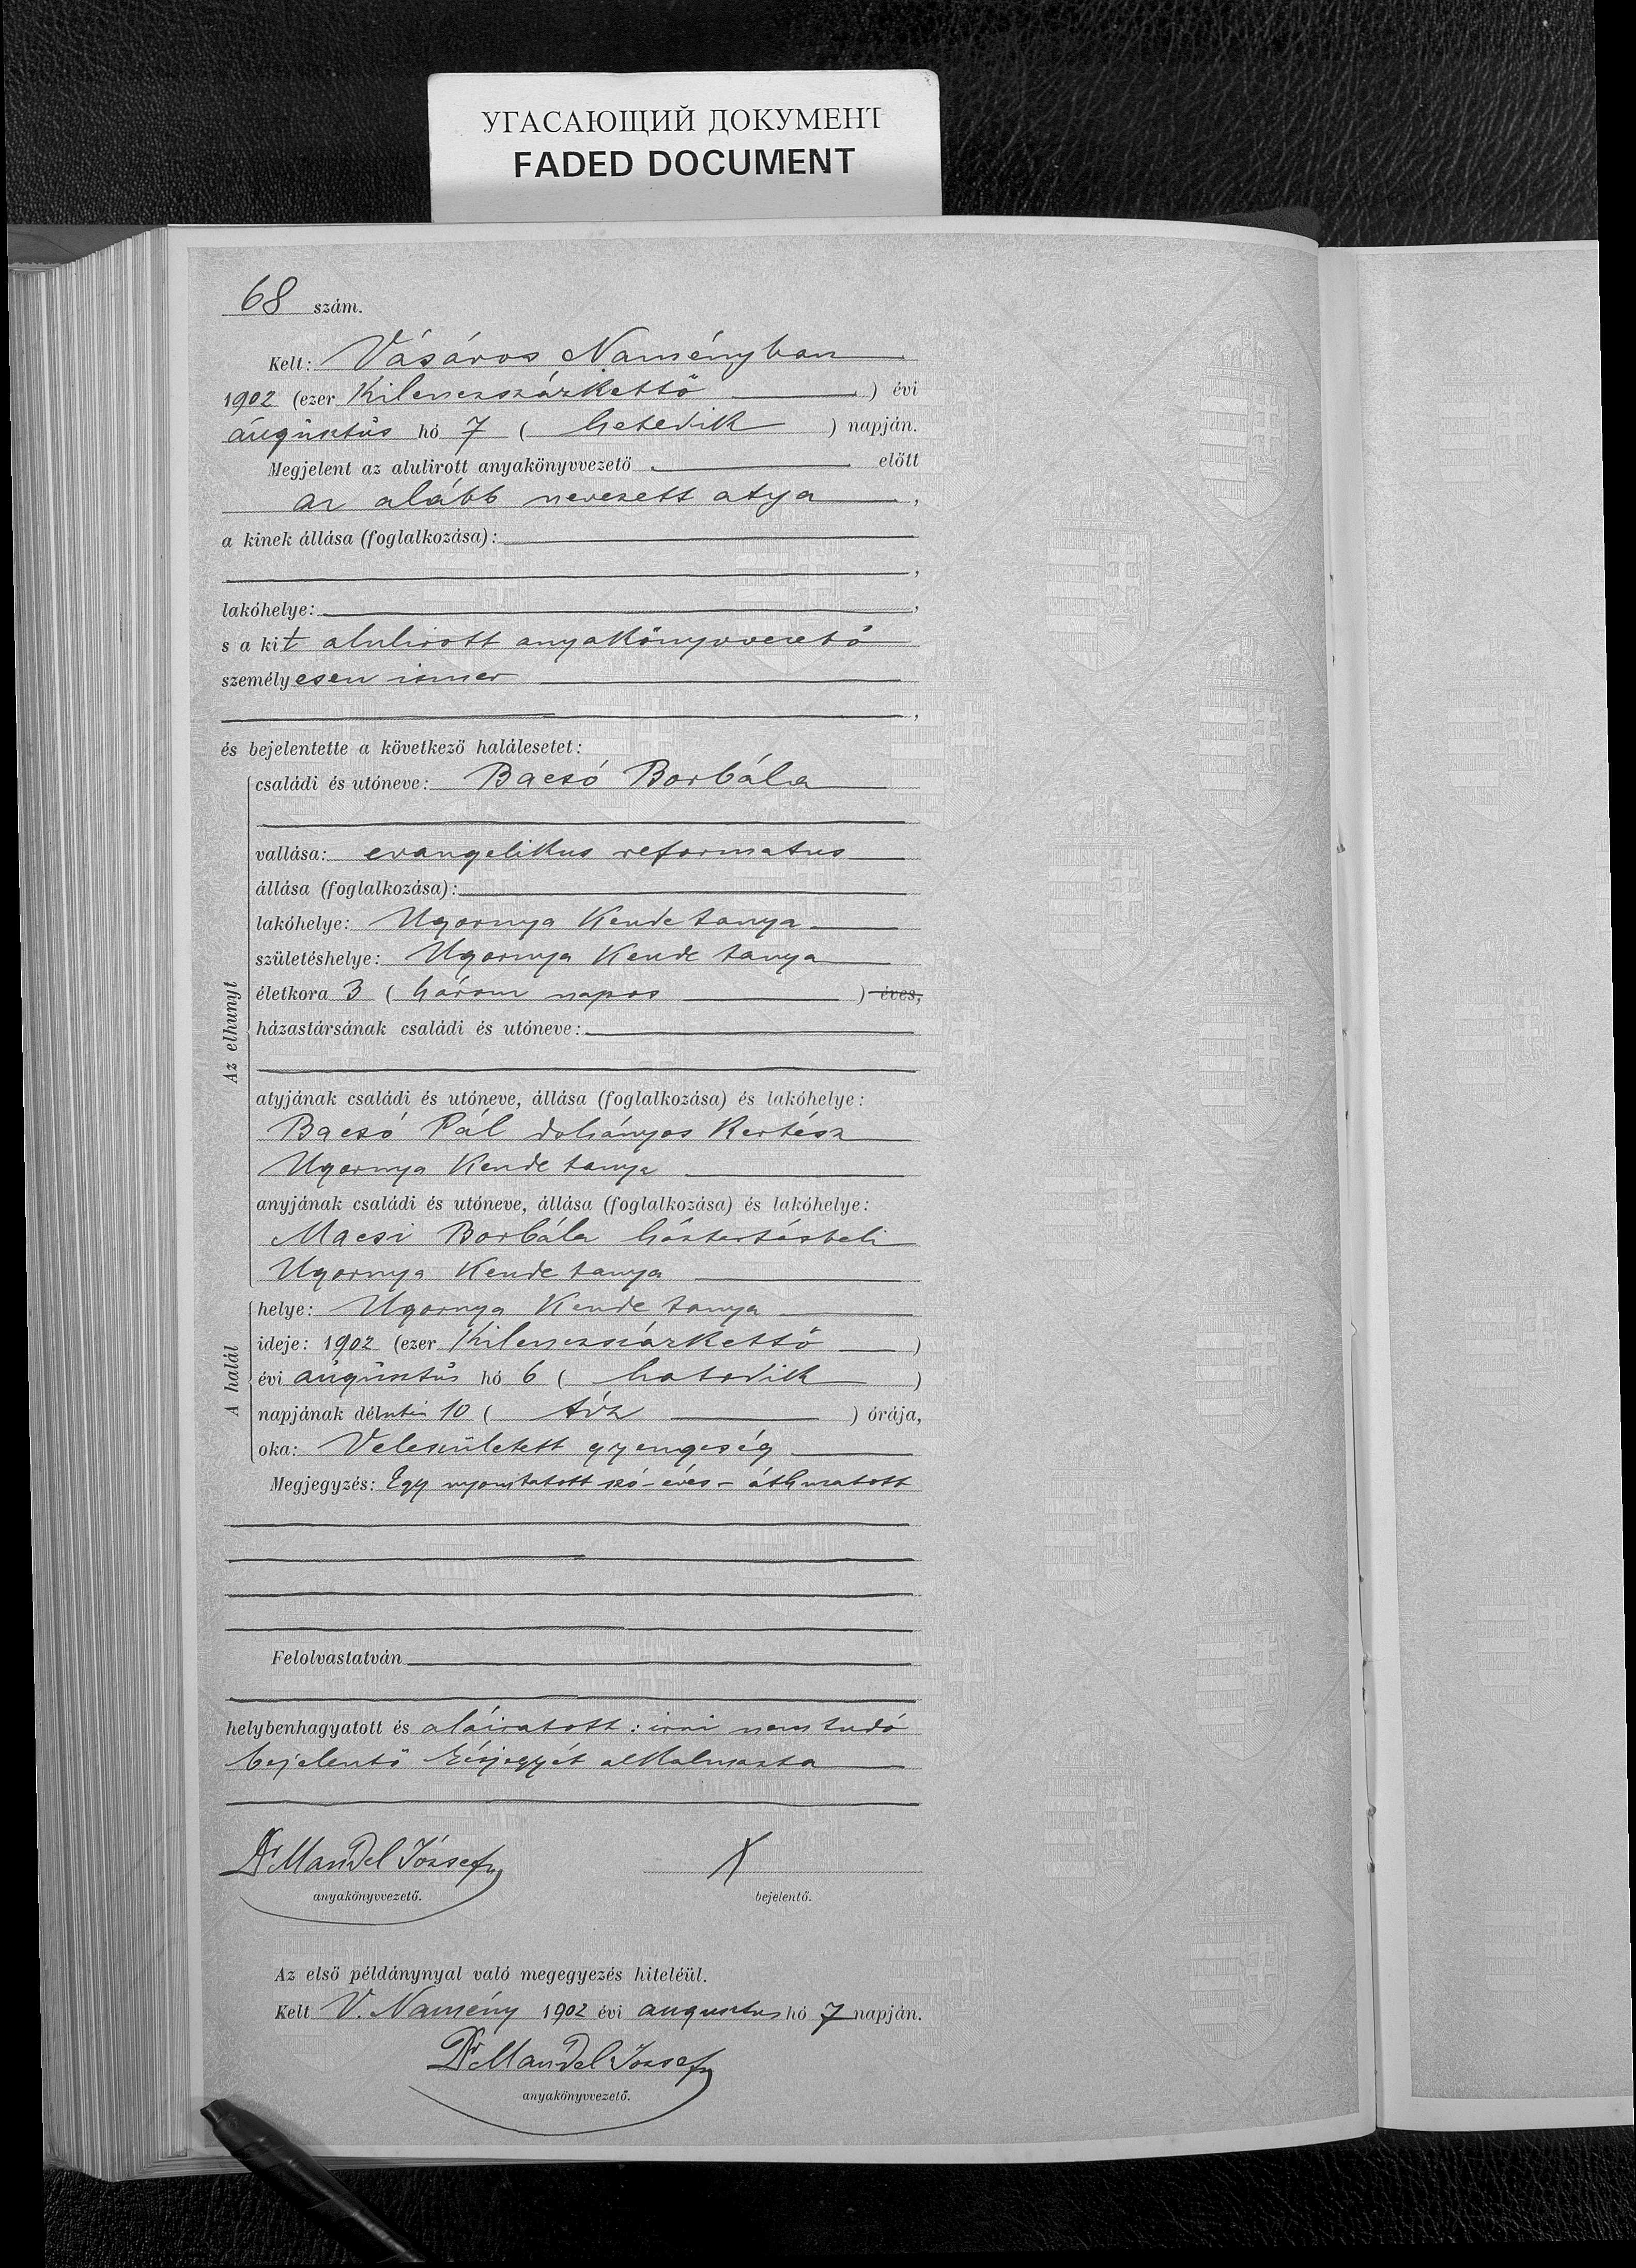 УГАСАЮЩИЙ ДОКУМЕНТ
FADED DOCUMENT
68 szám.
Kelt: Vásáros Naményban
1902 (ezer kilenczszázkettő ) évi
augusztus hó 7 ( hetedik ) napján.
Megjelent az alulirott anyakönyvvezető előtt
az alább nevezett atya,
a kinek állása (foglalkozása):
lakóhelye:
s a kit alulirott anyakönyvvezető
személyesen ismer
és bejelentette a következő halálesetet:
Az elhunyt
családi és utóneve: Bacsó Borbála
vallása: evangelikus reformatus
állása (foglalkozása):
lakóhelye: Ugornya Kende tanya
születéshelye: Ugornya Kende tanya
életkora 3 ( három napos ) éves,
házastársának családi és utóneve:
atyjának családi és utóneve, állása (foglalkozása) és lakóhelye:
Bacsó Pál dohányos kertész
Ugornya Kende tanya
anyjának családi és utóneve, állása (foglalkozása) és lakóhelye:
Macsi Borbála háztartásbeli
Ugornya Kende tanya
A halál
helye: Ugornya Kende tanya
ideje: 1902 (ezer kilenczszázkettő )
évi augusztus hó 6 ( hatodik )
napjának délutáni 10 ( tíz ) órája,
oka: Veleszületett gyengeség
Megjegyzés: Egy nyomtatott szó - éves - áthuzatott
Felolvastatván
helybenhagyatott és aláiratott: irni nem tudó
bejelentő kézjegyét alkalmazta
Dr Mandel József
anyakönyvvezető.
X
bejelentő.
Az első példánynyal való megegyezés hiteléül.
Kelt V. Namény 1902 évi augusztus hó 7 napján.
Dr Mandel József
anyakönyvvezető.